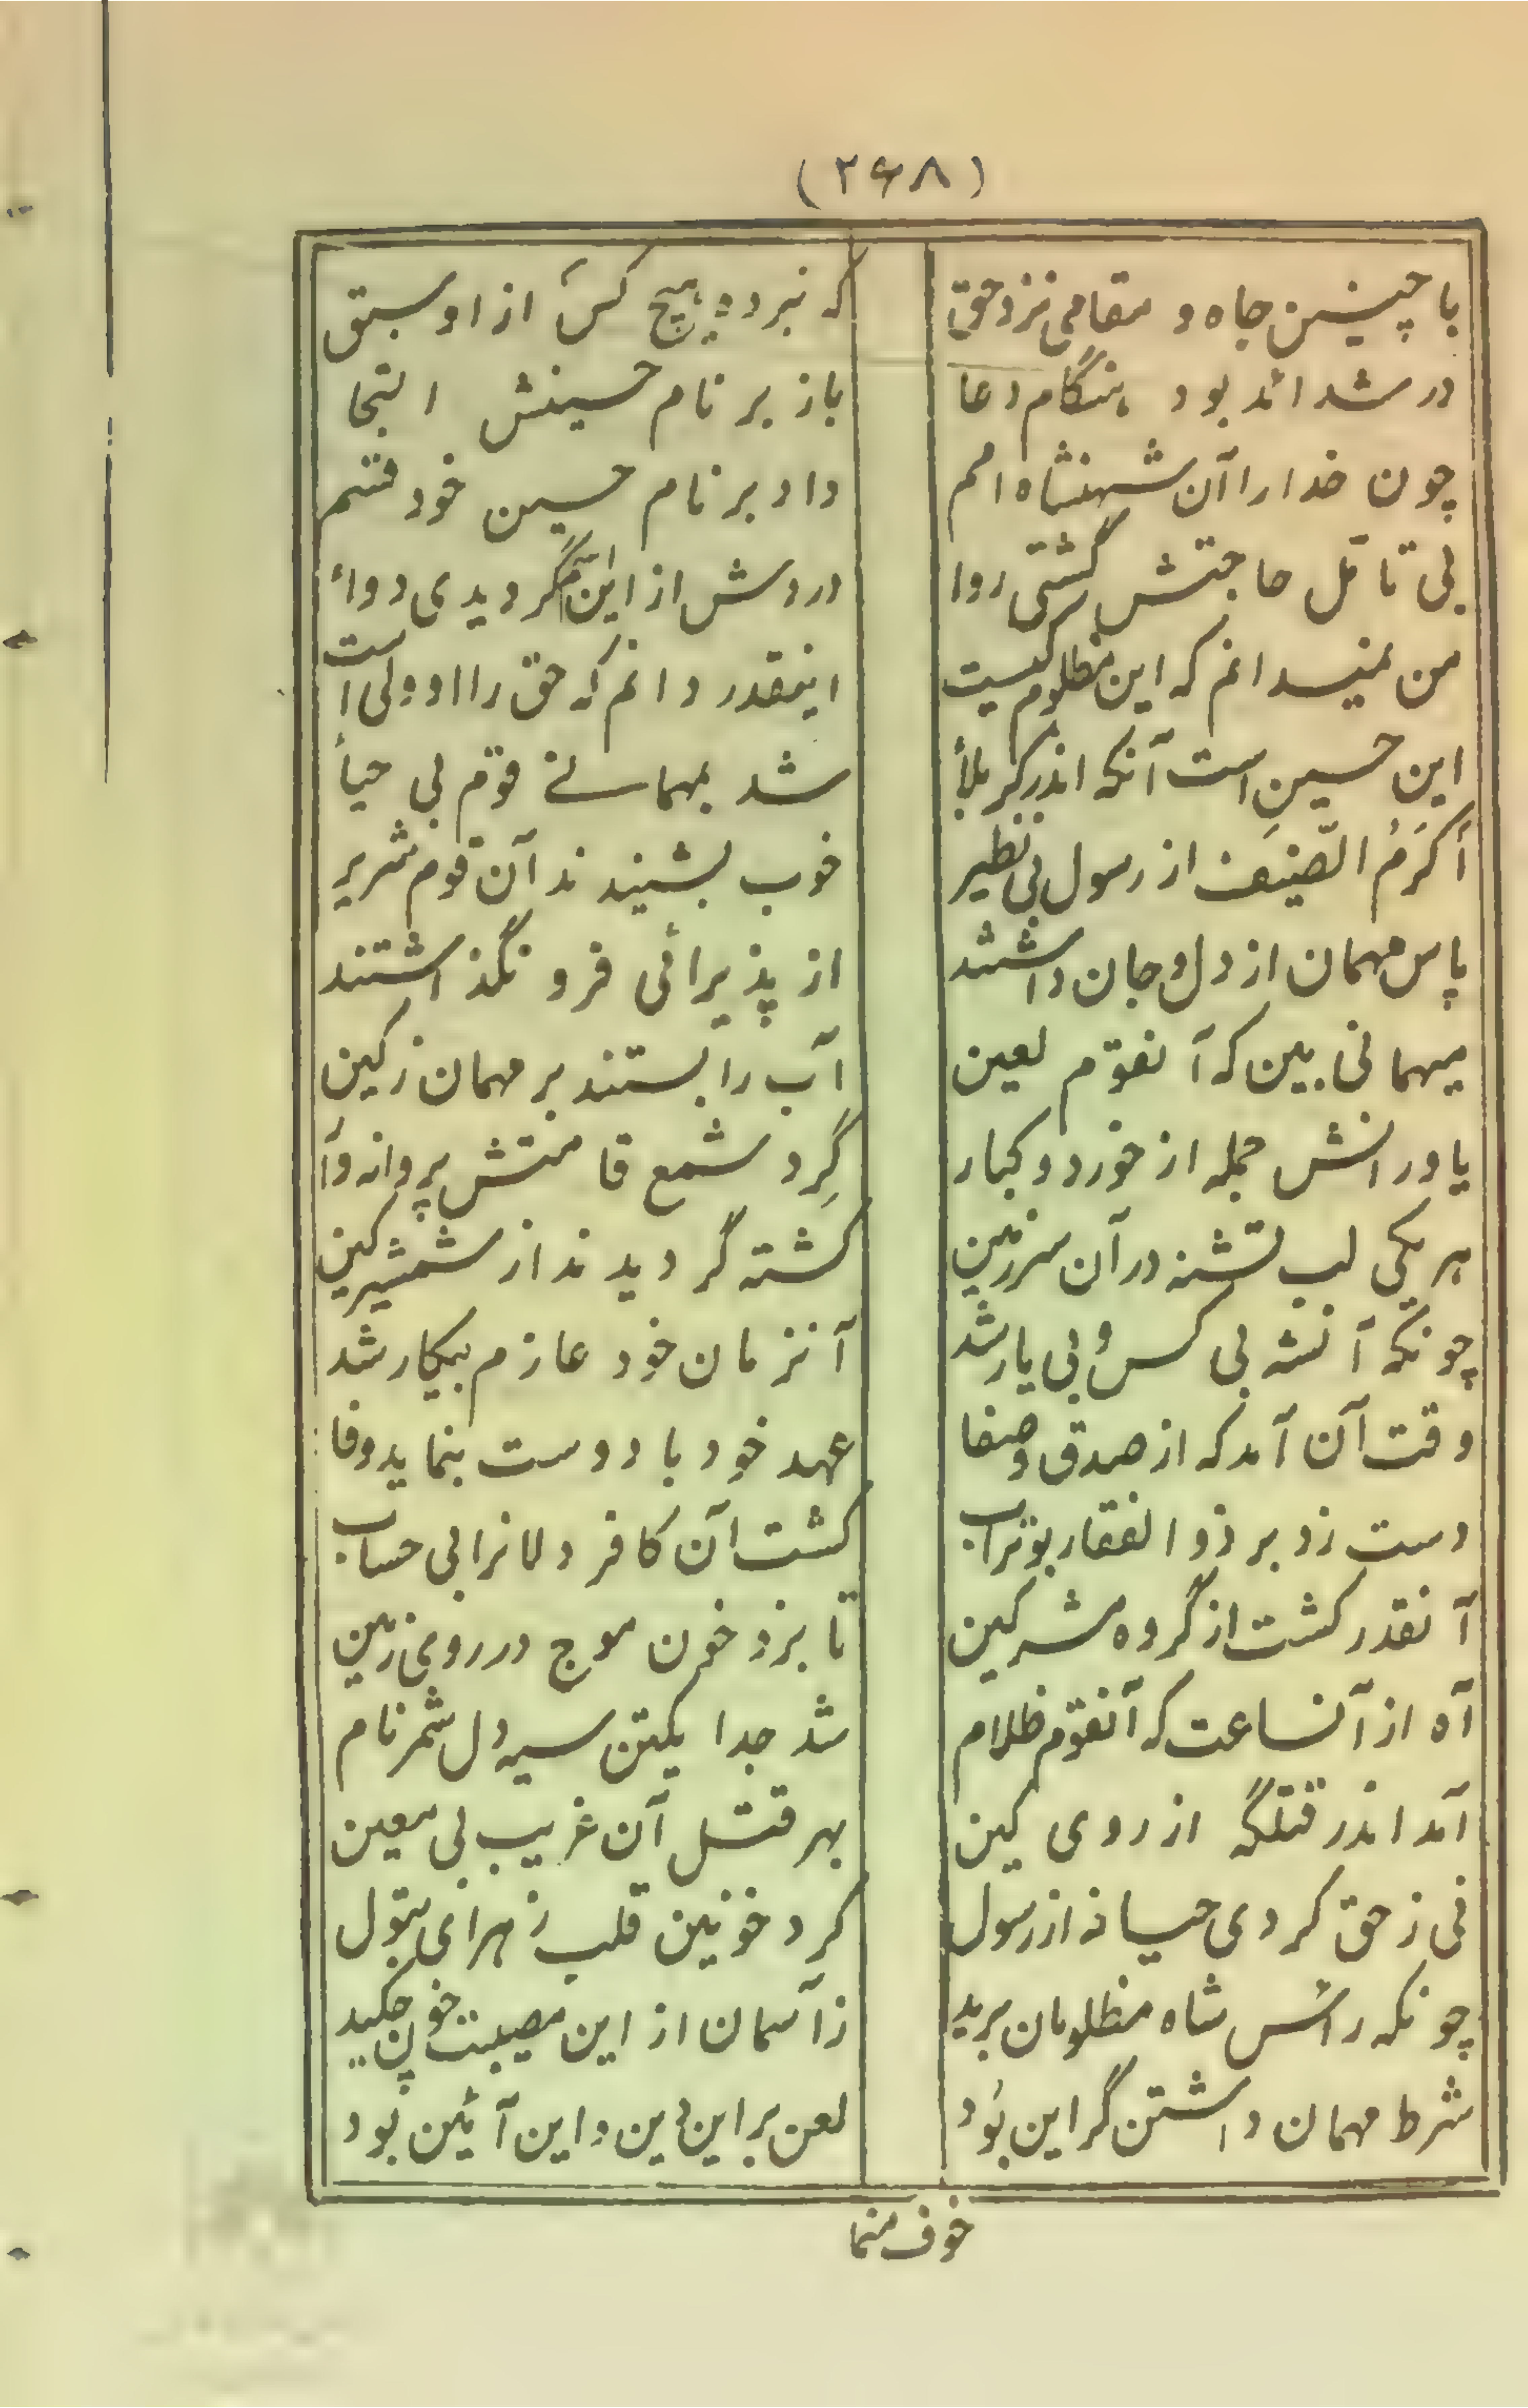 (۲۶۸)
با چنین جاه و مقامی نزد حق که نبرده هیچ کس از او سبق
در شدائد بود هنگام دعا باز بر نام حسینش التجا
چون خدا را آن شهنشاه امم داد بر نام حسین خود قسم
بی تأمل حاجتش گشتی روا دردش از این گردیدی دواء
من نمیدانم که این مظلوم کیست اینقدر دانم که حق را او ولی است
این حسین است آنکه اندر کربلأ شد بمهمانی قوم بی حیأ
أکرَمُ الضّیف از رسول بی نظیر خوب بشنیدند آن قوم شریر
پاس مهمان از دل و جان داشتند از پذیرائی فرو نگذاشتند
میهمانی بین که آنقوم لعین آب را بستند بر مهمان ز کین
یاورانش جمله از خورد و کبار گِرد شمع قامتش پروانه وآ
هر یکی لب تشنه در آن سرزمین کشته گردیدند از شمشیر کین
چونکه آنشه بی کس و بی یار شد آنزمان خود عازم پیکار شد
وقت آن آمد که از صدق و صفا عهد خود با دوست بنماید وفا
دست زد بر ذوالفقار بوتراب کشت آن کافر دلانرا بی حساب
آنقدر کشت از گروه مشرکین تا بزد خون موج در روی زمین
آه از آنساعت که آنقوم ظلام شد جدا یکتن سیه دل شمر نام
آمد اندر قتلگه از روی کین بهر قتل آن غریب بی معین
نی ز حق کردی حیا نه از رسول کرد خونین قلب زهرای بتول
چونکه رأس شاه مظلومان برید ز آسمان از این مصیبت خون چکید
شرط مهمان داشتن گر این بُود لعن بر این دین و این آئین بُود
خوف منما